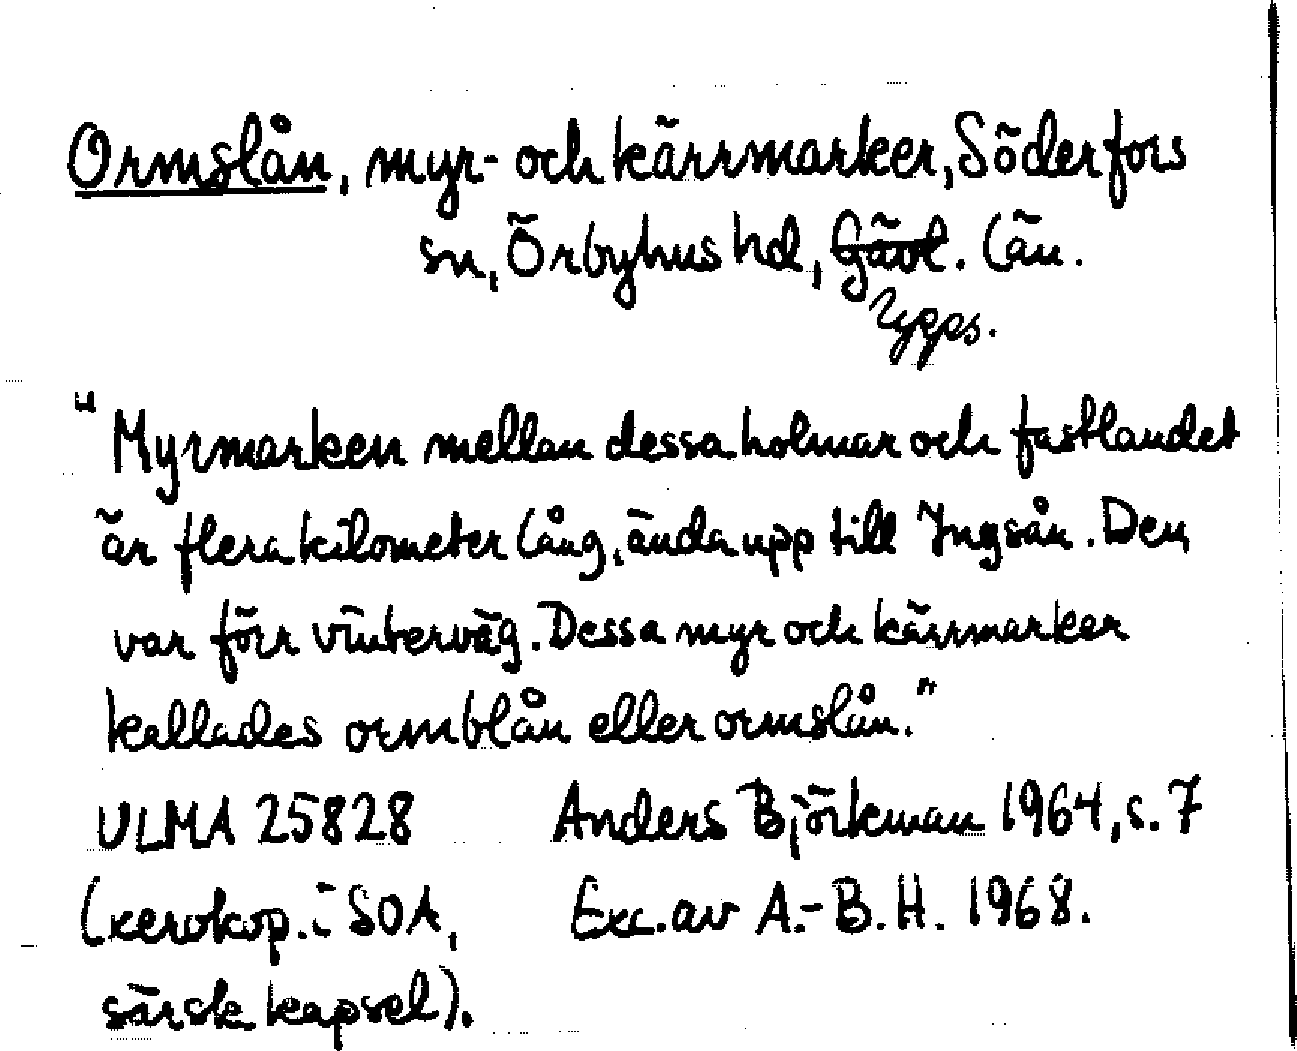 Ormslån, myr- och kärrmarker, Söderfors
sn, Örbyhus hd, Gävl. län.
Upps.
"Myrmarken mellan dessa holmar och fastlandet
är flera kilometer lång, ända upp till Yngsån. Den
var förr vinterväg. Dessa myr och kärrmarker
kallades ormblån eller ormslån."
ULMA 25828 Anders Björkman 1964, s. 7
(xerokop. i SOA, Exc. av A.-B. H. 1968.
särsk kapsel).